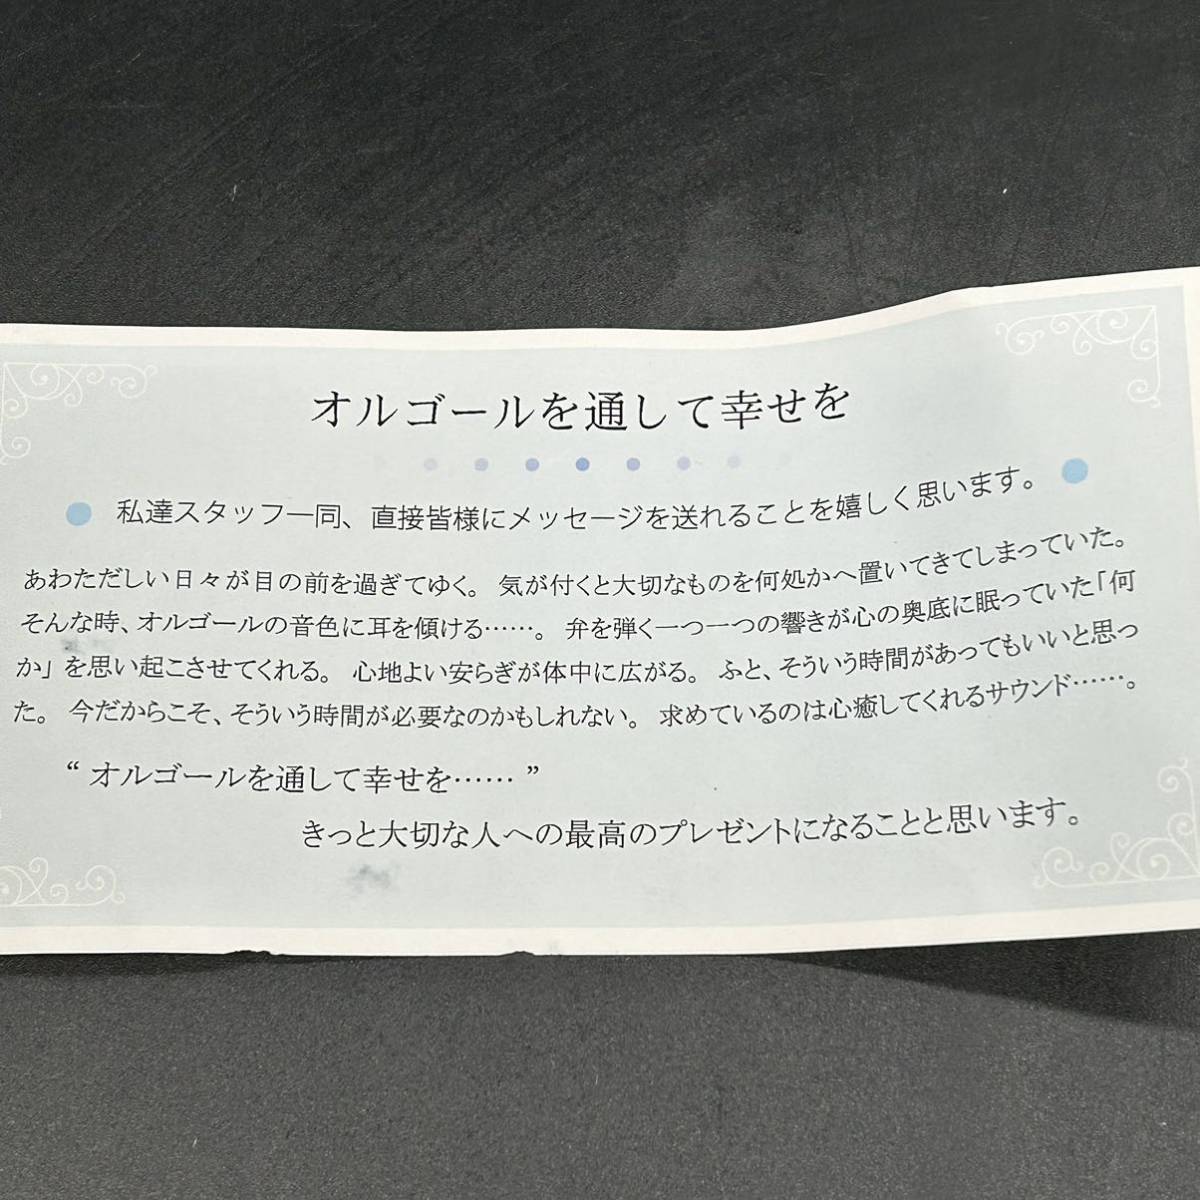 オルゴールを通して幸せを
私達スタッフ一同、直接皆様にメッセージを送れることを嬉しく思います。
あわただしい日々が目の前を過ぎてゆく。 気が付くと大切なものを何処かへ置いてきてしまっていた。
そんな時、オルゴールの音色に耳を傾ける……。 弁を弾く一つ一つの響きが心の奥底に眠っていた「何
か」を思い起こさせてくれる。 心地よい安らぎが体中に広がる。 ふと、そういう時間があってもいいと思っ
た。 今だからこそ、そういう時間が必要なのかもしれない。 求めているのは心癒してくれるサウンド……。
“ オルゴールを通して幸せを…… ”
きっと大切な人への最高のプレゼントになることと思います。